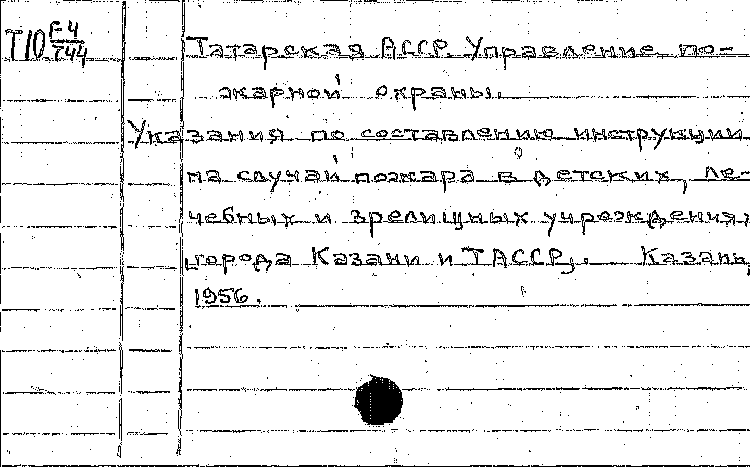 Т10 F-4
T44
Татарская АССР. Управление по-
жарной охраны.
Указания по составлению инструкции
на случай пожара в детских, ле-
чебных и зрелищных учреждениях
города Казани и ТАССР,. Казань,
1956.